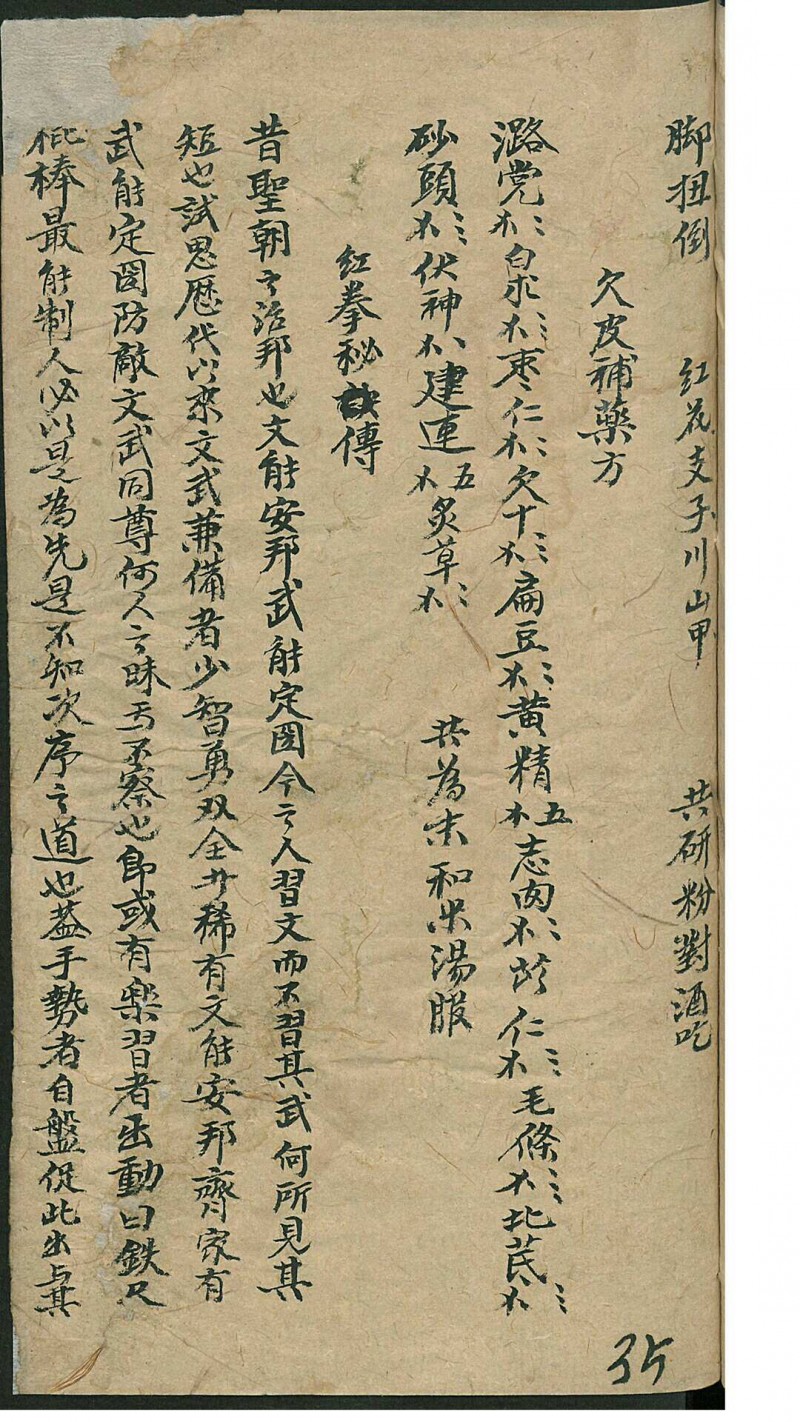 脚扭倒 红花支子川山甲 共研粉對酒吃
欠皮補藥方
潞党 白术 枣仁 欠十 扁豆 黄精 五 志肉 仁 毛條 北芪
砂頭 伏神 建莲 五 炙草 共為末和米湯服
红拳秘訣傳
昔聖朝之治邦也文能安邦武能定囯今之人習文而不習其武何所見其
短也試思歷代以來文武兼備者少智勇双全者稀有文能安邦齊家有
武能定囯防敵文武同尊何人之昧焉不察也即或有樂習者出動曰鉄尺
棒最能制人必以是為先是不知次序之道也盖手勢者自盤促此出与其
35